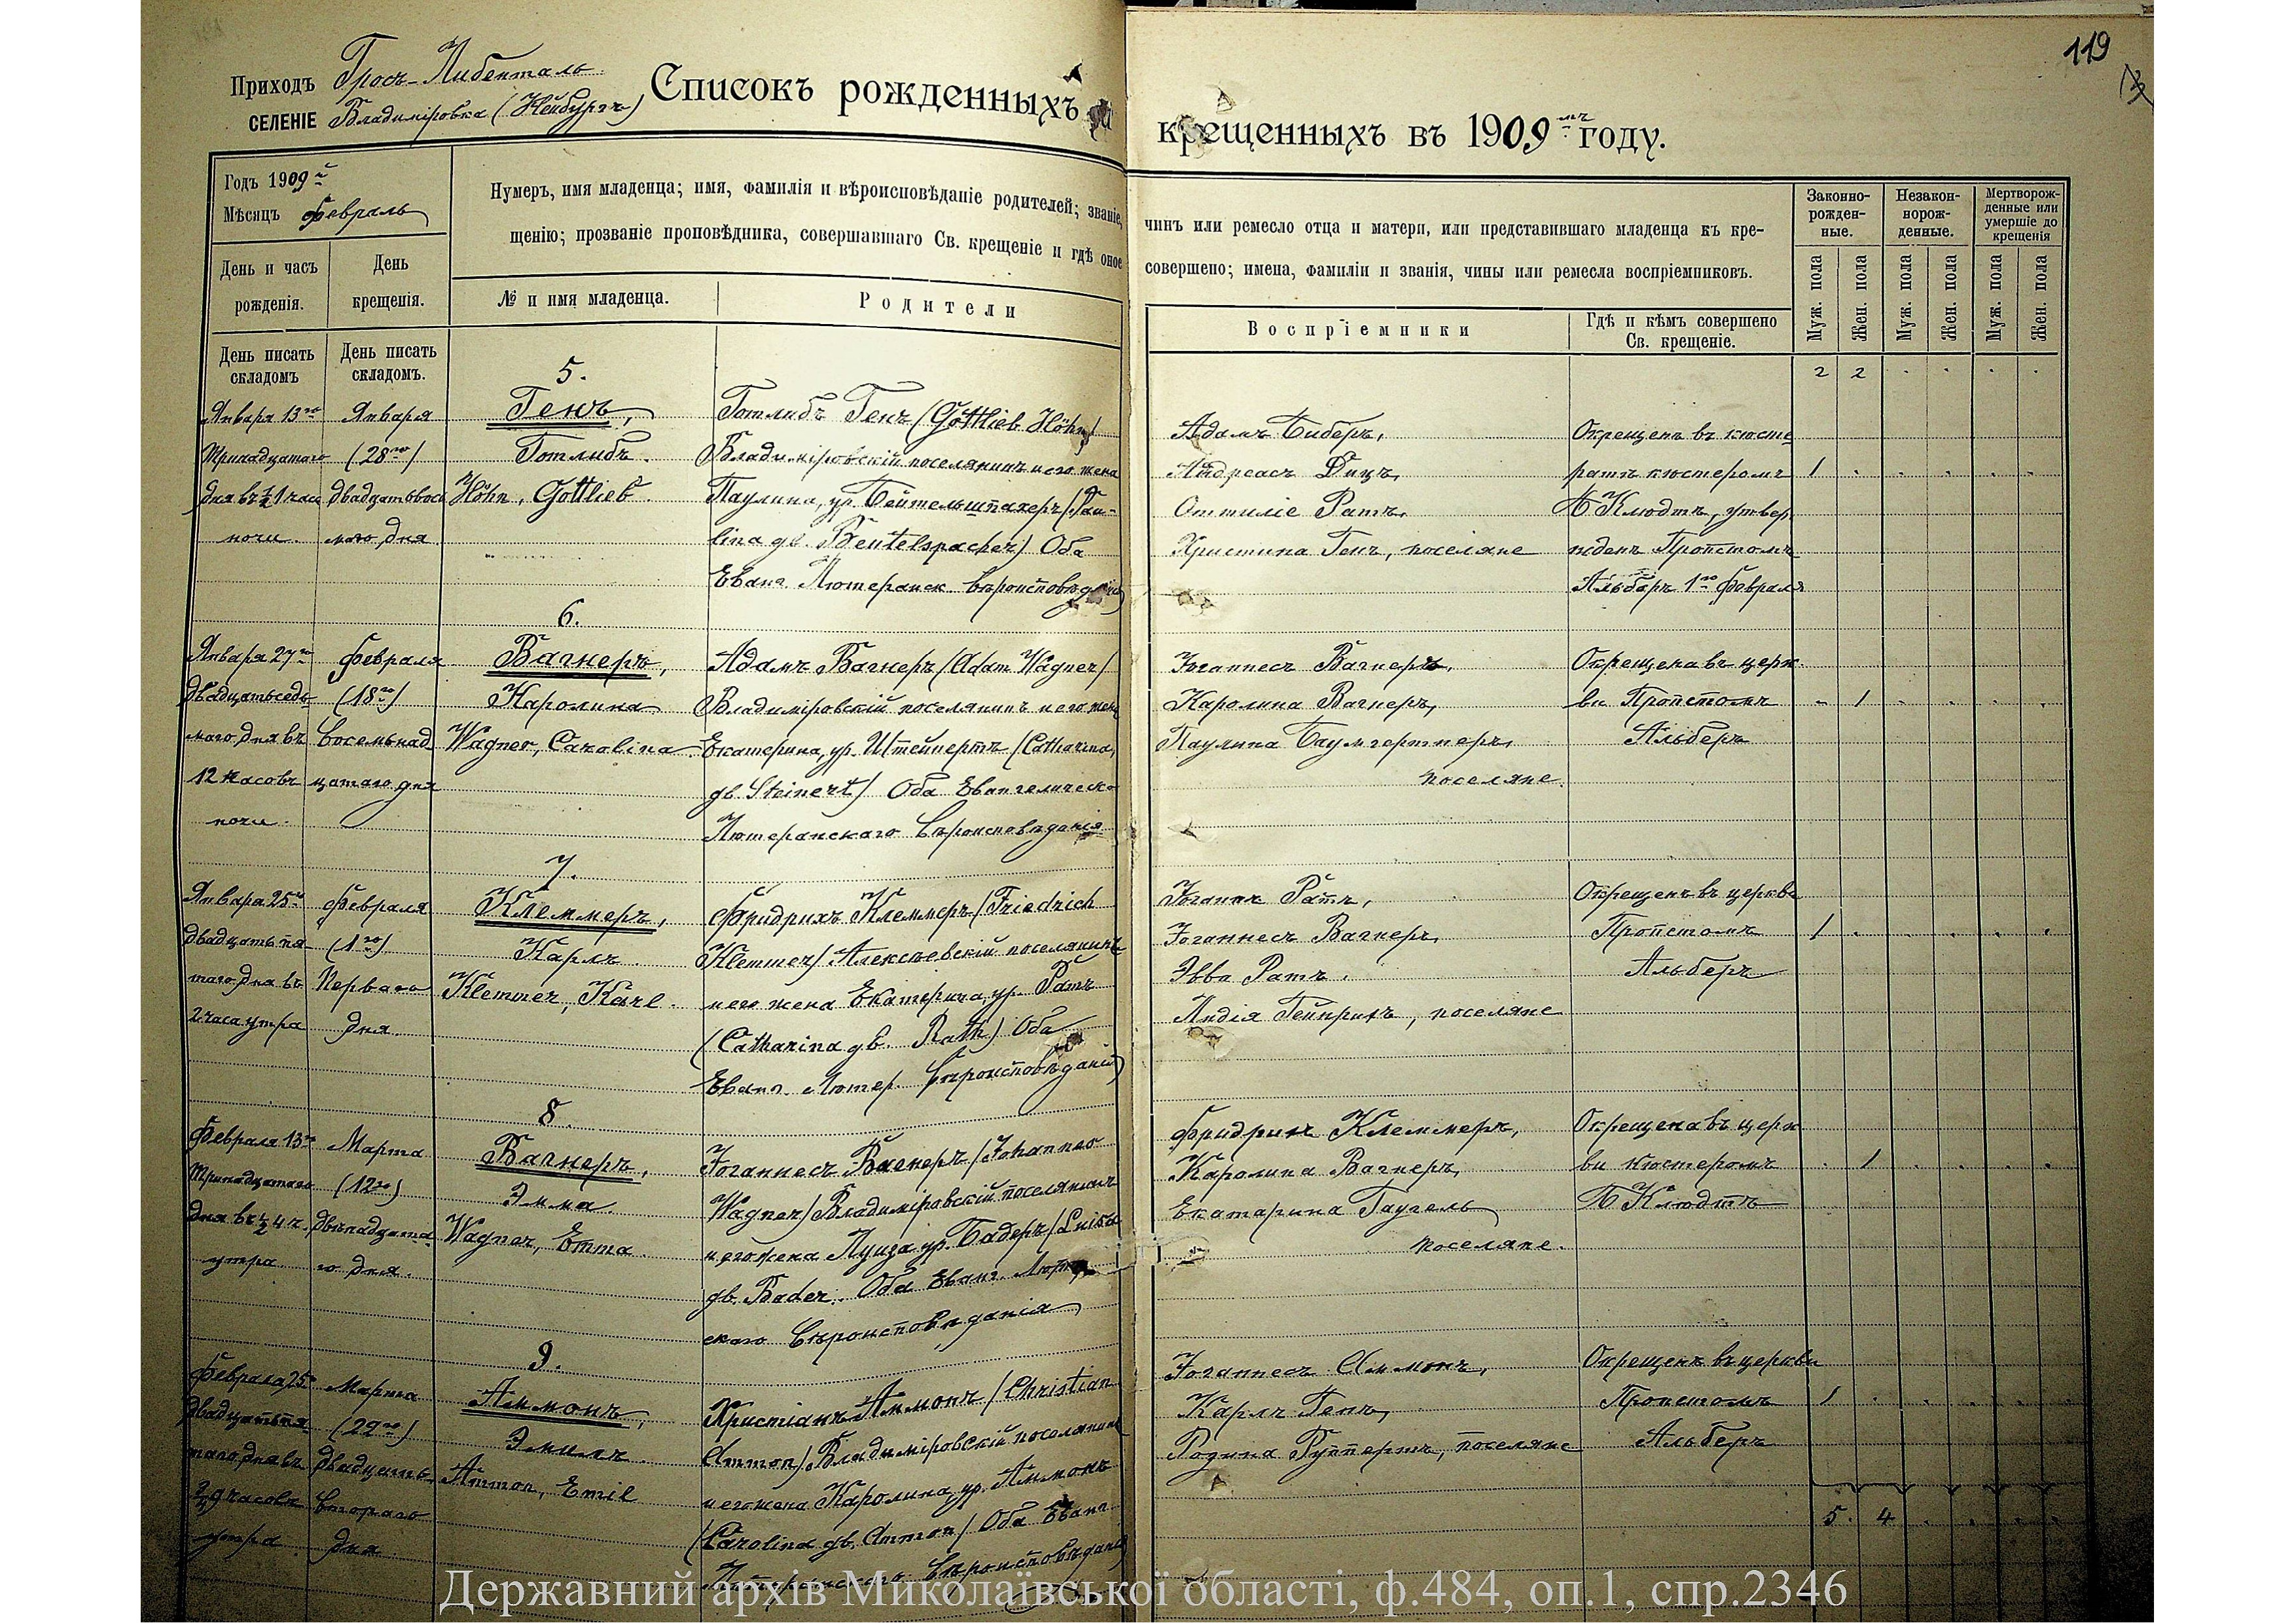 119
Приходъ Гросъ-Либенталь
СЕЛЕНІЕ Владиміровка (Нейбургъ)
Списокъ рожденныхъ и крещенныхъ въ 1909мъ году.
Годъ 1909й
Мѣсяцъ февраль
Нумеръ, имя младенца; имя, фамилія и вѣроисповѣданіе родителей; званіе, чинъ или ремесло отца и матери, или представившаго младенца къ кре-
щенію; прозваніе проповѣдника, совершавшаго Св. крещеніе и гдѣ оное совершено; имена, фамиліи и званія, чины или ремесла воспріемниковъ.
День и часъ рожденія.
День крещенія.
№ и имя младенца.
Родители
Воспріемники
Гдѣ и кѣмъ совершено Св. крещеніе.
Законно-рожден-ные.
Незакон-норож-денные.
Мертворож-денные или умершіе до крещенія
Муж. пола
Жен. пола
Муж. пола
Жен. пола
Муж. пола
Жен. пола
День писать складомъ
День писать складомъ.
2 2 . . . .
5.
Января 13го
Тринадцатаго
дня въ ½ 1 часа
ночи.
Января
(28го)
двадцатьвось
маго дня
Генъ,
Готлибъ.
Höhn, Gottlieb.
Готлибъ Генъ (Gottlieb Höhn)
Владиміровскій поселянинъ и его жена
Паулина, ур. Бейтельшпахеръ (Pau-
lina gb. Beutelspacher) Оба
Еванг. Лютеранск. вѣроисповѣданія
Адамъ Биберъ,
Андреасъ Дицъ,
Оттиліе Ратъ,
Христина Генъ, поселяне
Окрещенъ въ кюсте
ратѣ кюстеромъ
Клюдтъ, утвер
жденъ Пропстомъ
Альберъ 1го февраля
1 . . . . .
6.
Января 27го
двадцатьседь
маго дня въ
12 часовъ
ночи.
Февраля
(18го)
восемнад
цатаго дня
Вагнеръ,
Каролина
Wagner, Carolina
Адамъ Вагнеръ (Adam Wagner)
Владиміровскій поселянинъ и его жена
Екатерина, ур. Штейнертъ (Catharina,
gb. Steinert) Оба Евангелическо
Лютеранскаго вѣроисповѣданія
Іоганнесъ Вагнеръ,
Каролина Вагнеръ,
Паулина Баумгертнеръ,
поселяне.
Окрещена въ церк
ви Пропстомъ
Альберъ
. 1 . . . .
7.
Января 25го
двадцать пя
таго дня въ
2 часа утра
Февраля
(1го)
Перваго
дня
Клеммеръ,
Карлъ.
Klemmer, Karl.
Фридрихъ Клеммеръ (Friedrich
Klemmer) Алексѣевскій поселянинъ
и его жена Екатерина, ур. Ратъ
(Catharina gb. Rath) Оба
Еванг. Лютер. вѣроисповѣданія
Іоганнъ Ратъ,
Іоганнесъ Вагнеръ,
Эва Ратъ.
Лидія Гейнрихъ, поселяне
Окрещенъ въ церкви
Пропстомъ
Альберъ
1 . . . . .
8.
Февраля 13го
Тринадцатаго
дня въ ½ 4 ч.
утра
Марта
(12го)
двѣнадцата
го дня.
Вагнеръ,
Эмма.
Wagner, Emma.
Іоганнесъ Вагнеръ (Johannes
Wagner) Владиміровскій поселянинъ
и его жена Луиза ур. Бадеръ (Luisa
gb. Bader. Оба Еванг. Лютеран
скаго вѣроисповѣданія
Фридрихъ Клеммеръ,
Каролина Вагнеръ,
Екатарина Гаугель
поселяне.
Окрещена въ церк
ви кюстеромъ
Клюдтъ
. 1 . . . .
9.
Февраля 25го
двадцать пя
таго дня въ
½ 9 часовъ
утра
Марта
(22го)
двадцать
втораго
дня
Аммонъ,
Эмиль.
Ammon, Emil
Христіанъ Аммонъ (Christian
Ammon) Владиміровскій поселянинъ
и его жена Каролина, ур. Аммонъ
(Carolina gb. Ammon) Оба Еванг.
Лютеранскаго вѣроисповѣданія
Іоганнесъ Аммонъ,
Карлъ Генъ,
Родина Руппертъ, поселяне
Окрещенъ въ церкви
Пропстомъ
Альберъ
1 . . . . .
5. 4 . . . .
Державний архів Миколаївської області, ф.484, оп.1, спр.2346